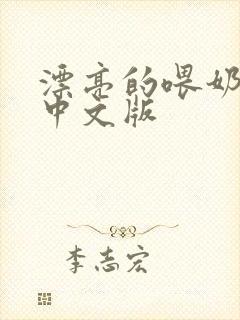 漂亮的喂奶
中文版
李志宏